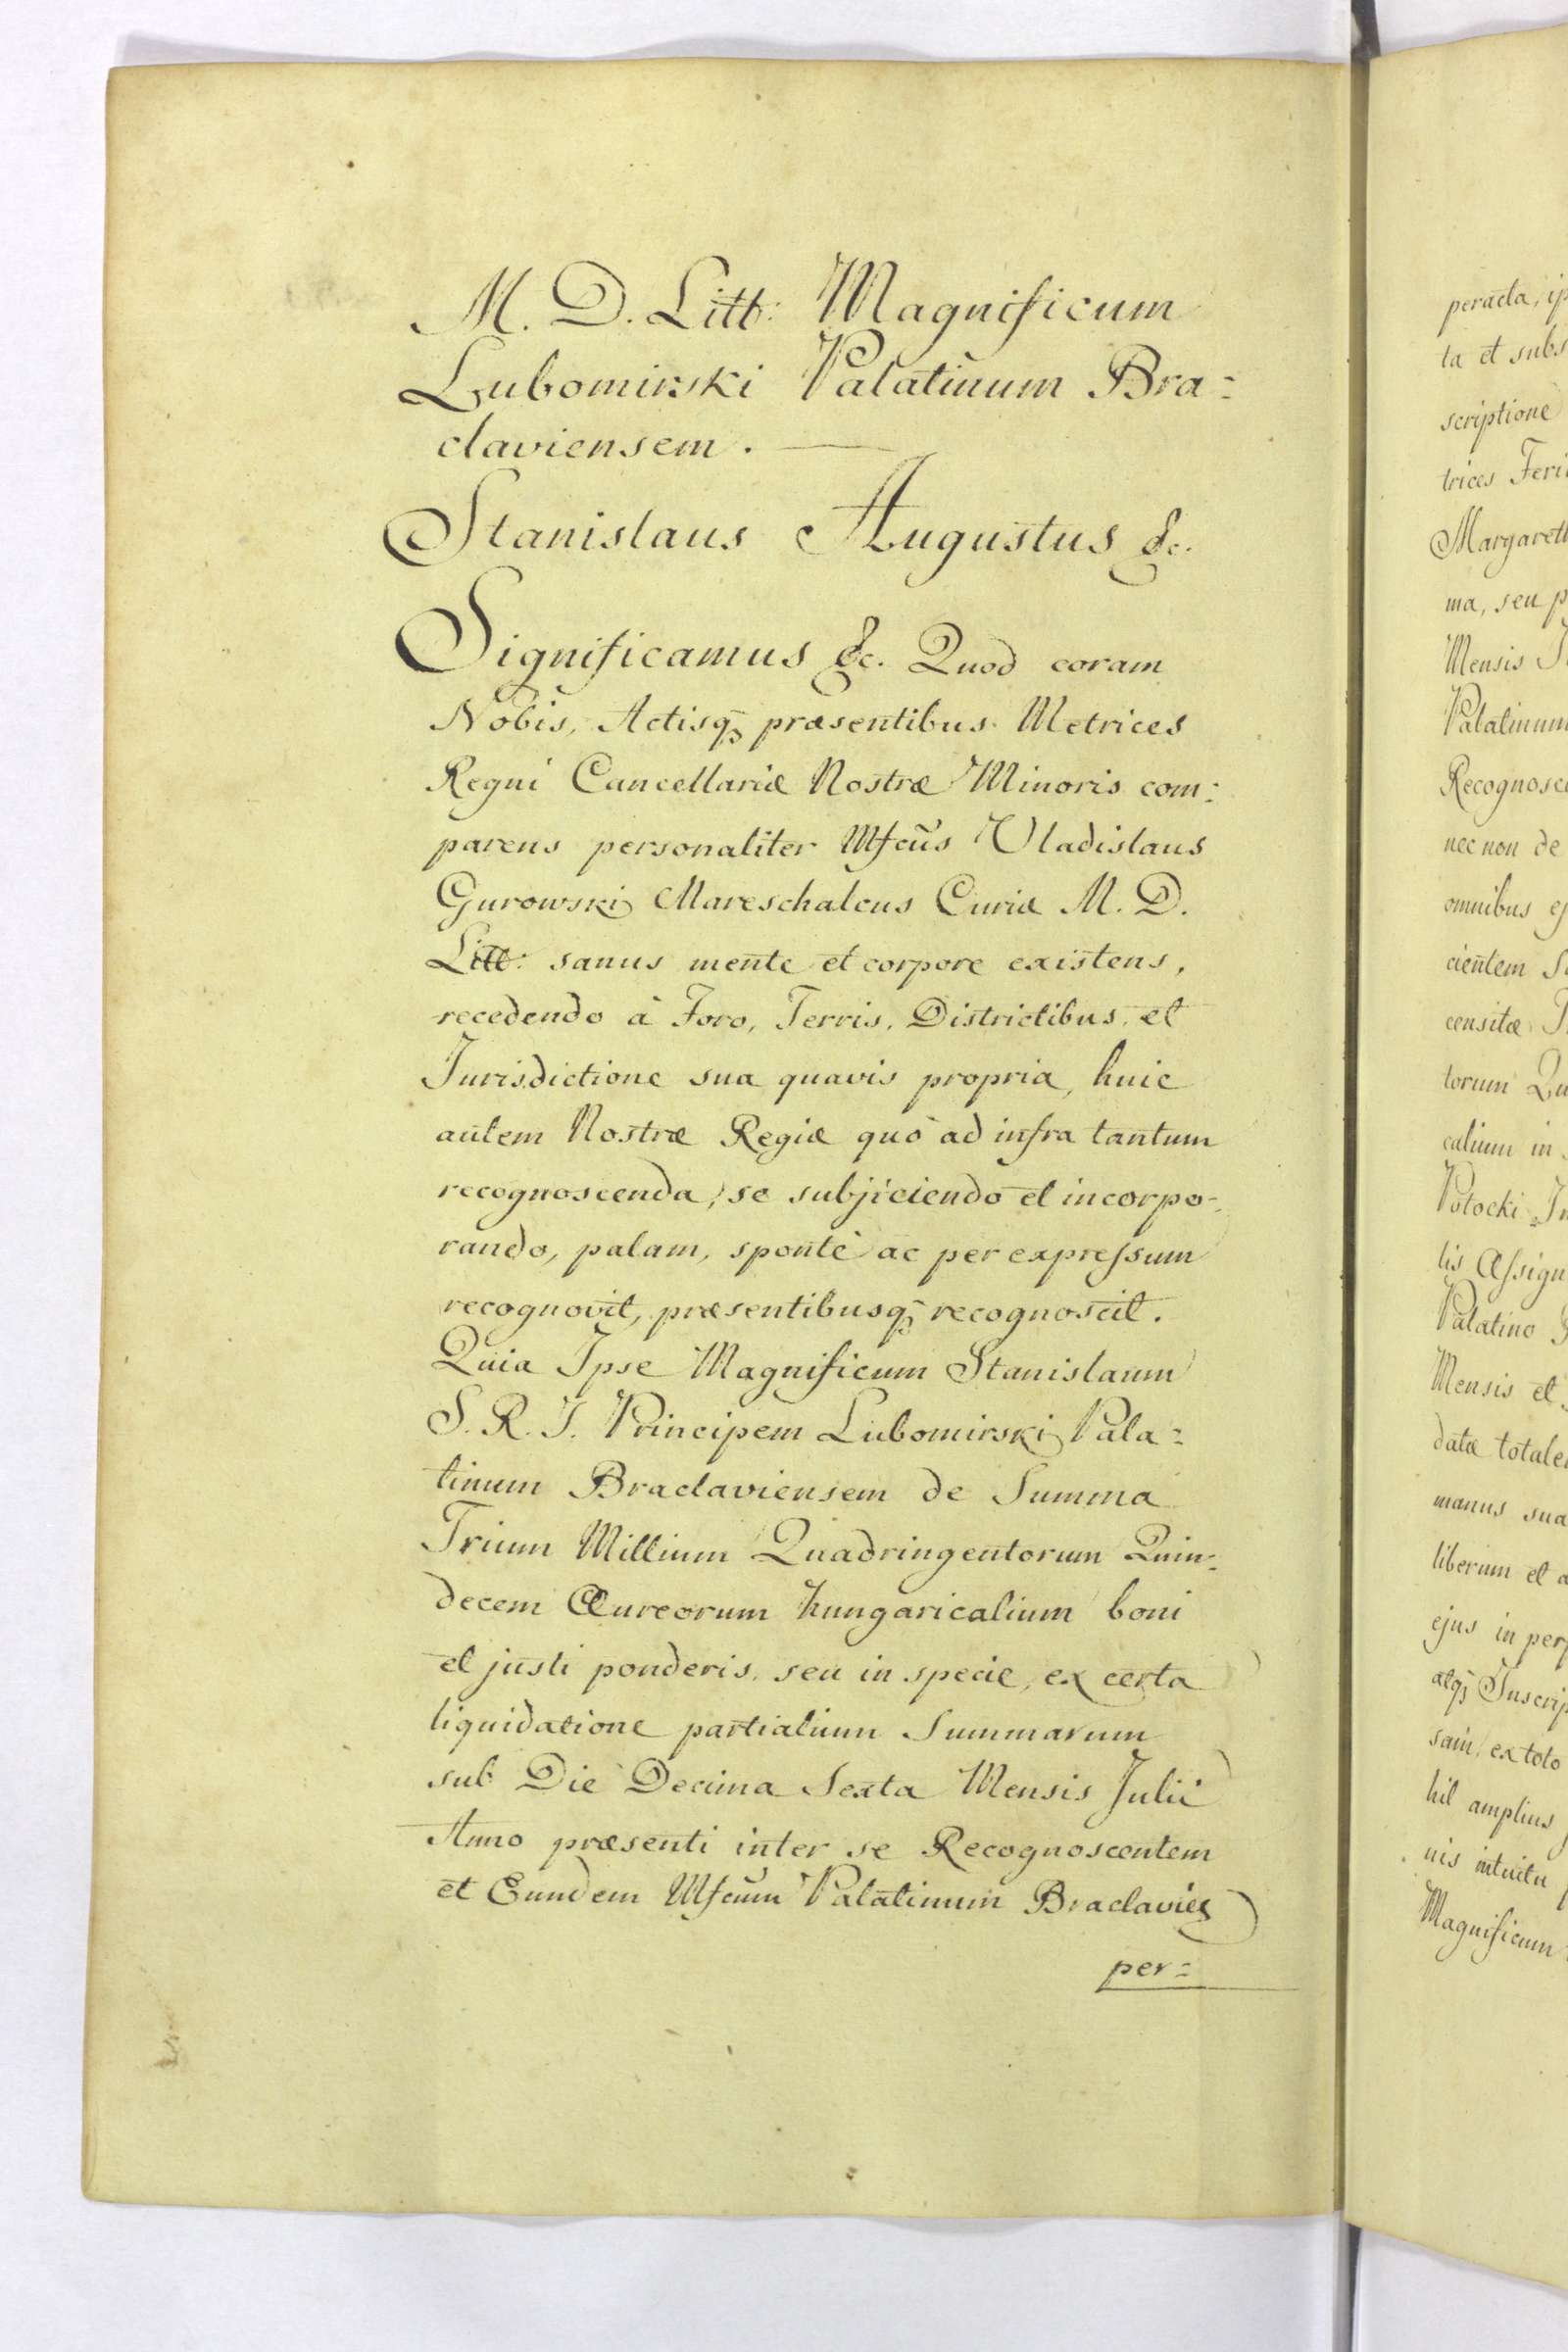 M. D. Litt: Magnificum
Lubomirski Palatinum Bra=
claviensem.
Stanislaus Augustus &c.
Significamus &c. Quod coram
Nobis, Actisq₃ præsentibus Metrices
Regni Cancellariæ Nostræ Minoris com=
parens personaliter Mfcũs Vladislaus
Gurowski Mareschalcus Curiæ M. D.
Litt: sanus mente et corpore existens,
recedendo à Foro, Terris, Districtibus, et
Jurisdictione sua quavis propria, huic
autem Nostræ Regiæ quò ad infra tantum
recognoscenda, se subjiciendo et incorpo-
rando, palam, spontè ac per expressum
recognovit, præsentibusq₃ recognoscit.
Quia Ipse Magnificum Stanislaum
S. R. I. Principem Lubomirski Pala=
tinum Braclaviensem de Summa
Trium Millium Quadringentorum Quin=
decem Aureorum hungaricalium boni
et justi ponderis, seu in specie, ex certa
liquidatione partialium Summarum
sub Die Decima Sexta Mensis Julii
Anno præsenti inter se Recognoscentem
et Eundem Mfcũm Palatinum Braclavieɳ
per=
peracta,
ta et subs
scriptione
trices Feri
Margareth
ma, seu p
Mensis
Palatinum
Recognosce
nec non de
omnibus ej
cientem
censitæ
torum Qu
calium in
Potocki
lis Assign
Palatino
Mensis et
datæ totale
manus sua
liberum et a
ejus in perp
atq₃ Inscrip
sam, ex toto
hil amplius
nis intuitu
Magnificum